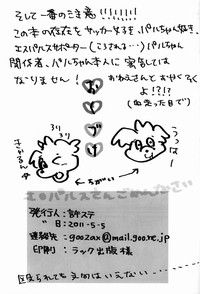 そして一番のご注意!!!!!!!
この本の存在をサッカー好き、パルちゃん好き、
エスパルスサポーター(ころされる…)パルちゃん
関係者、パルちゃん本人に察しては
なりません!
おねえさんとおやくそく
よ!?!?
(血走った目で)
うっはー
ちがい
エスパルスさんごめんなさい
発行人:
〃日:2011-5-5
連絡先:goozax@mail.goo.ne.jp
印刷:ラック出版様
文句はいえない……